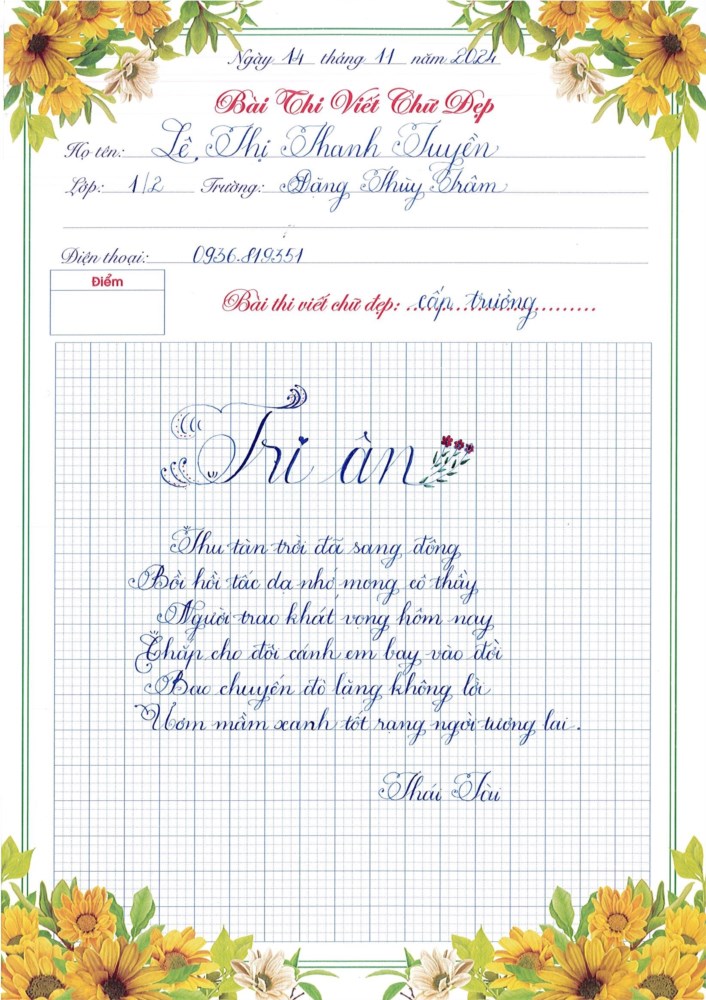 Ngày 14 tháng 11 năm 2024
Bài Thi Viết Chữ Đẹp
Họ tên: Lê Thị Thanh Tuyền
Lớp: 1/2 Trường: Đặng Thùy Trâm
Điện thoại: 0936.819351
Điểm
Bài thi viết chữ đẹp: cấp trường
Tri ân
Thu tàn trời đã sang đông
Bồi hồi tấc dạ nhớ mong cô thầy
Người trao khát vọng hôm nay
Chắp cho đôi cánh em bay vào đời
Bao chuyến đò lặng không lời
Ươm mầm xanh tốt rạng ngời tương lai.
Thái Tài